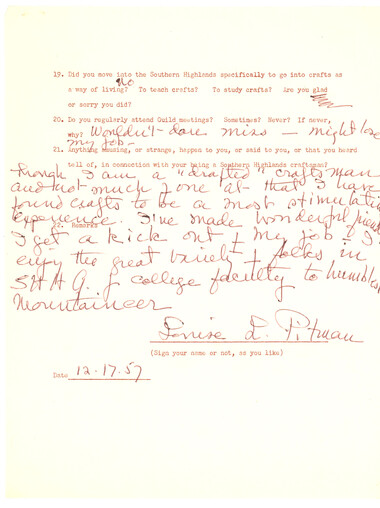 19. Did you move into the Southern Highlands specifically to go into crafts as
a way of living? No To teach crafts? To study crafts? Are you glad
or sorry you did?
20. Do you regularly attend Guild meetings? Sometimes? Never? If never,
why? Wouldn't dare miss — might lose
my job —
21. Anything amusing, or strange, happen to you, or said to you, or that you heard
tell of, in connection with your being a Southern Highlands craftsman?
Though I am a "drafted" craftsman
and not much of one at that I have
found crafts to be a most stimulating
experience. I've made wonderful friends
22. Remarks
I get a kick out of my job & I
enjoy the great variety of folks in
SHHG. from college faculty to humblest
Mountaineer
Louise L. Pitman
(Sign your name or not, as you like)
Date 12.17.57